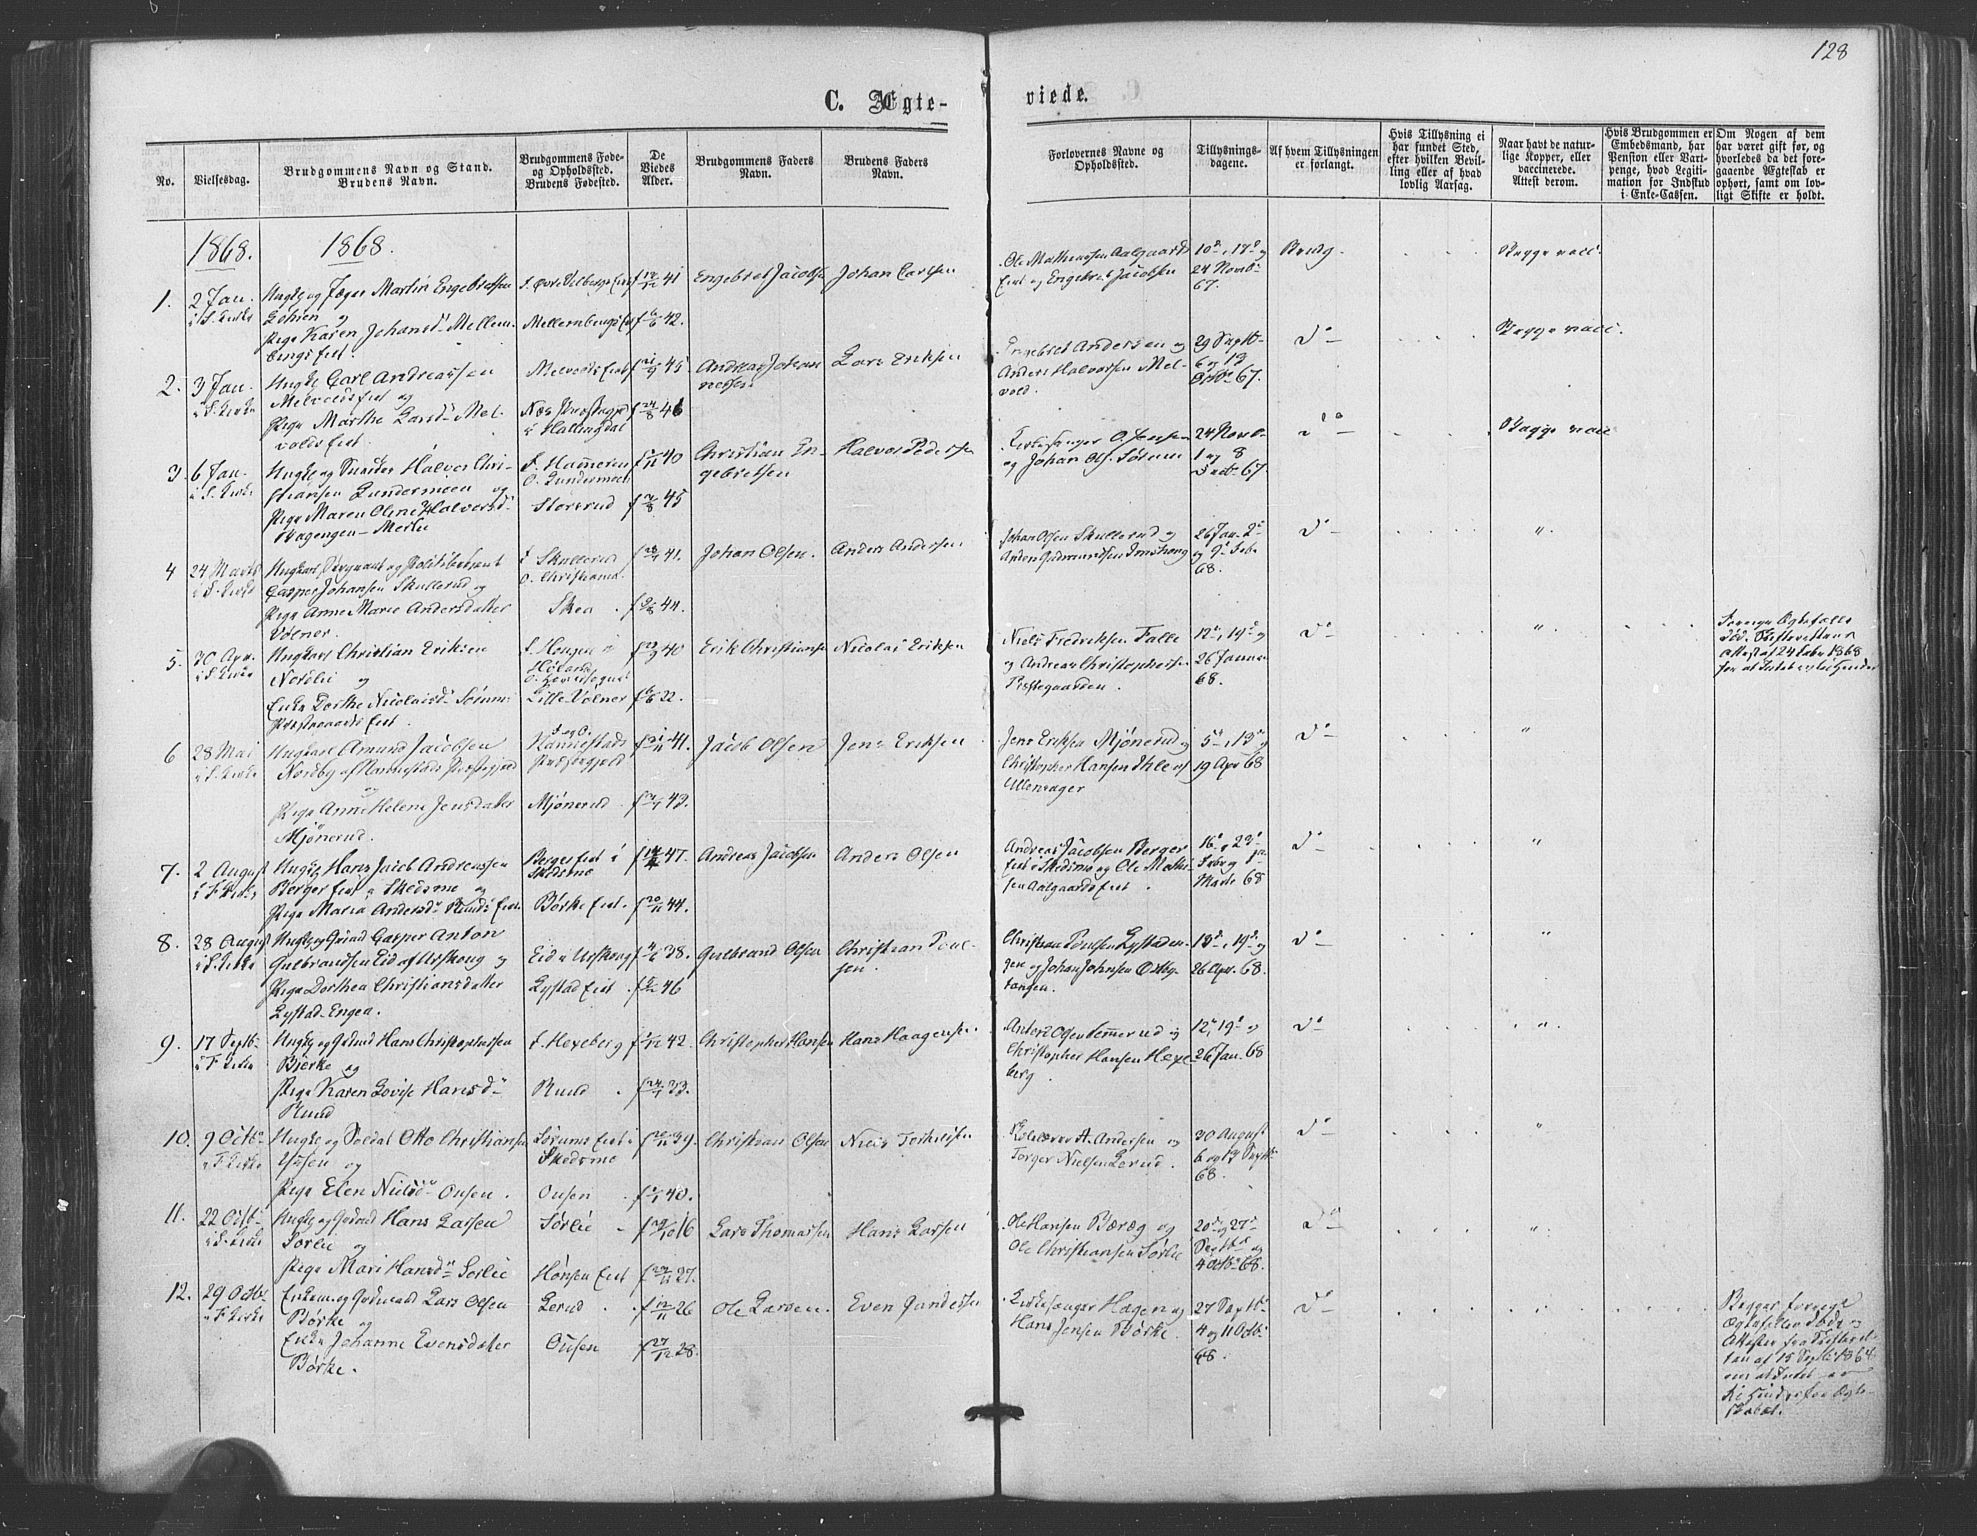 128
C. Ægte-
viede.
No.
Vielsesdag.
Brudgommens Navn og Stand.
Brudens Navn.
Brudgommens Føde-
og Opholdssted.
Brudens Fødested.
De
Viedes
Alder.
Brudgommens Faders
Navn.
Brudens Faders
Navn.
Forlovernes Navne og
Opholdssted.
Tillysnings-
dagene.
Af hvem Tillysningen
er forlangt.
Hvis Tillysning ei
har fundet Sted,
efter hvilken Bevil-
ling eller af hvad
lovlig Aarsag.
Naar havt de natur-
lige Kopper, eller
vaccinerede.
Attest derom.
Hvis Brudgommen er
Embedsmand, har
Pension eller Vart-
penge, hvad Legiti-
mation for Indskud
i Enke-Cassen.
Om Nogen af dem
har været gift før, og
hvorledes da det fore-
gaaende Ægteskab er
ophørt, samt om lov-
ligt Skifte er holdt.
1868. 1868.
1. 2 Jan. Ungk. og Jæger Martin Engebretsen
41 Engebret Jacobsen Johan Carlsen
Lohien og
Pige Karen Johansd. Mellem-
bergs Eiet.
Mellembergs Eiet 42.
Ole Mathiassen Aalgaards
Eiet og Engebret Jacobsen
10de, 17de og
24 Novb.
67.
Brudg.
Begge vacc.
2. 3 Jan. Ungk. Carl Andreassen
Melvolds Eiet og
Pige Marthe Larsd. Mel-
volds Eiet.
Melvolds Eiet 45
Næs Præstegjd
i Hallingdal 46
Andreas Johan-
nessen
Lars Eriksen
Engebret Andersen og
Anders Halvorsen Mel-
vold.
29 Septb.
6 og 13
Octb. 67.
do
Begge vacc.
3. 6 Jan. Ungk. og Snedker Halvor Chri-
stiansen Lundermoen og
Pige Maren Oline Halvorsd.
Vagengen-Merlie
f. Hammeren
o. Lundermoen 40
Storerud 45
Christian En-
gebretsen
Halvor Pedersen
Kirkesanger O. Jensen
og Johan Ols. Sørum
24 Novb.
1 og 8
Decb. 67.
do
Begge vacc.
4 24 Marts
Ungkarl Sergeant og Politibetjent
Casper Johansen Skullerud og
Pige Anne Marie Andersdatter
Vølner.
f. Skullerud
o. Christiania 41.
Skea 44.
Johan Olsen. Anders Andersen
Johan Olsen Skullerud og
Anders Gudmundsen
26 Jan. 2de
og 9de Feb.
68.
do "
5. 30 Apr. Ungkarl Christian Eriksen
Nordlie og
Enke Dorthe Nicolaisd. Sørum-
Præstegaards Eiet.
f. Hougen i
Høland 40
Lille Vølner 22.
Erik Christiansen Nicolai Eriksen
Niels Fredriksen Falla
og Andreas Christophersen
Præstegaarden.
12te, 19de og
26 Januar
68.
do "
Attest af 24 Febr. 1868
6 28 Mai Ungkarl Amund Jacobsen
Nordby af Nannestads Præstegjeld
og
Pige Anne Helene Jensdatter
Mjønerud.
f. og o.
Nannestads
Præstegjeld 41.
Mjønerud 43.
Jacob Olsen Jens Eriksen
Jens Eriksen Mjønerud og
Christopher Hansen Ihle af
Ullensager
5te, 13de og
19 Apr. 68
do "
7. 2 August Ungk. Hans Jacob Andreassen
Berger Eiet i Skedsmo og
Pige Maria Andersd. Ruuds Eiet
Berger Eiet i
Skedsmo 47.
Børke Eiet. 44.
Andreas Jacobsen Anders Olsen
Andreas Jacobsen Berger
Eiet i Skedsmo og Ole Mathi-
sen Aalgaards Eiet.
16de, 23de
Febr. og 1ste
Marts 68
do "
8. 28 August Ungk. og Grmd Casper Anton
Gulbrandsen Eid af Urskoug og
Pige Dorthea Christiansdatter
Lystad-Engen.
Eid i Urskoug 38.
Lystad Eiet 46
Gulbrand Olsen Christian Poul-
sen.
Christian Poulsen Lystaden-
gen og Johan Johnsen Østby-
tangen.
13de, 19de og
26 Apr. 68.
do "
9. 17 Septb. Ungk. og Grmd Hans Christophersen
Bjerke og
Pige Karen Lovise Hansd.
Ruud
f. Hexeberg 42.
Ruud 33.
Christopher Hansen Hans Haagensen.
Anters Olsen Femmerud og
Christopher Hansen Hexe-
berg.
12te, 19de og
26 Jan. 68
do "
10. 9 Octb. Ungk. og Soldat Otto Christiansen
og
Pige Elen Nielsd. Ousen.
Sørums Eiet i
Skedsmo 39.
Ousen 40.
Christian Olsen Niels Torkelsen
Skolelærer A. Andersen og
Torger Nielsen Lerud.
30 August
6 og 13 Septb.
68.
do "
11. 22 Octb. Ungk. og Grmd Hans Larsen
Sørlie og
Pige Mari Hansd. Sørlie
Sørlie 16
Hønsen Eiet 27.
Lars Thomassen Hans Larsen
Ole Hansen Bæreg og
Ole Christiansen Sørlie
20de og 27de
Septb. og
4 Octb. 68.
do "
12. 29 Octb. Enkem. og Grdmand Lars Olsen
Børke og
Enke Johanne Evensdatter
Børke.
Lerud 26
Ousen 28.
Ole Larsen. Even Gundersen
Kirkesanger Haagen og
Hans Jensen Børke.
27 Septb.
4 og 11 Octb.
68.
do "
Begges forrige
Ægtefæller døde og
Attester fra Skifteret-
ten af 15 Septb. 1868